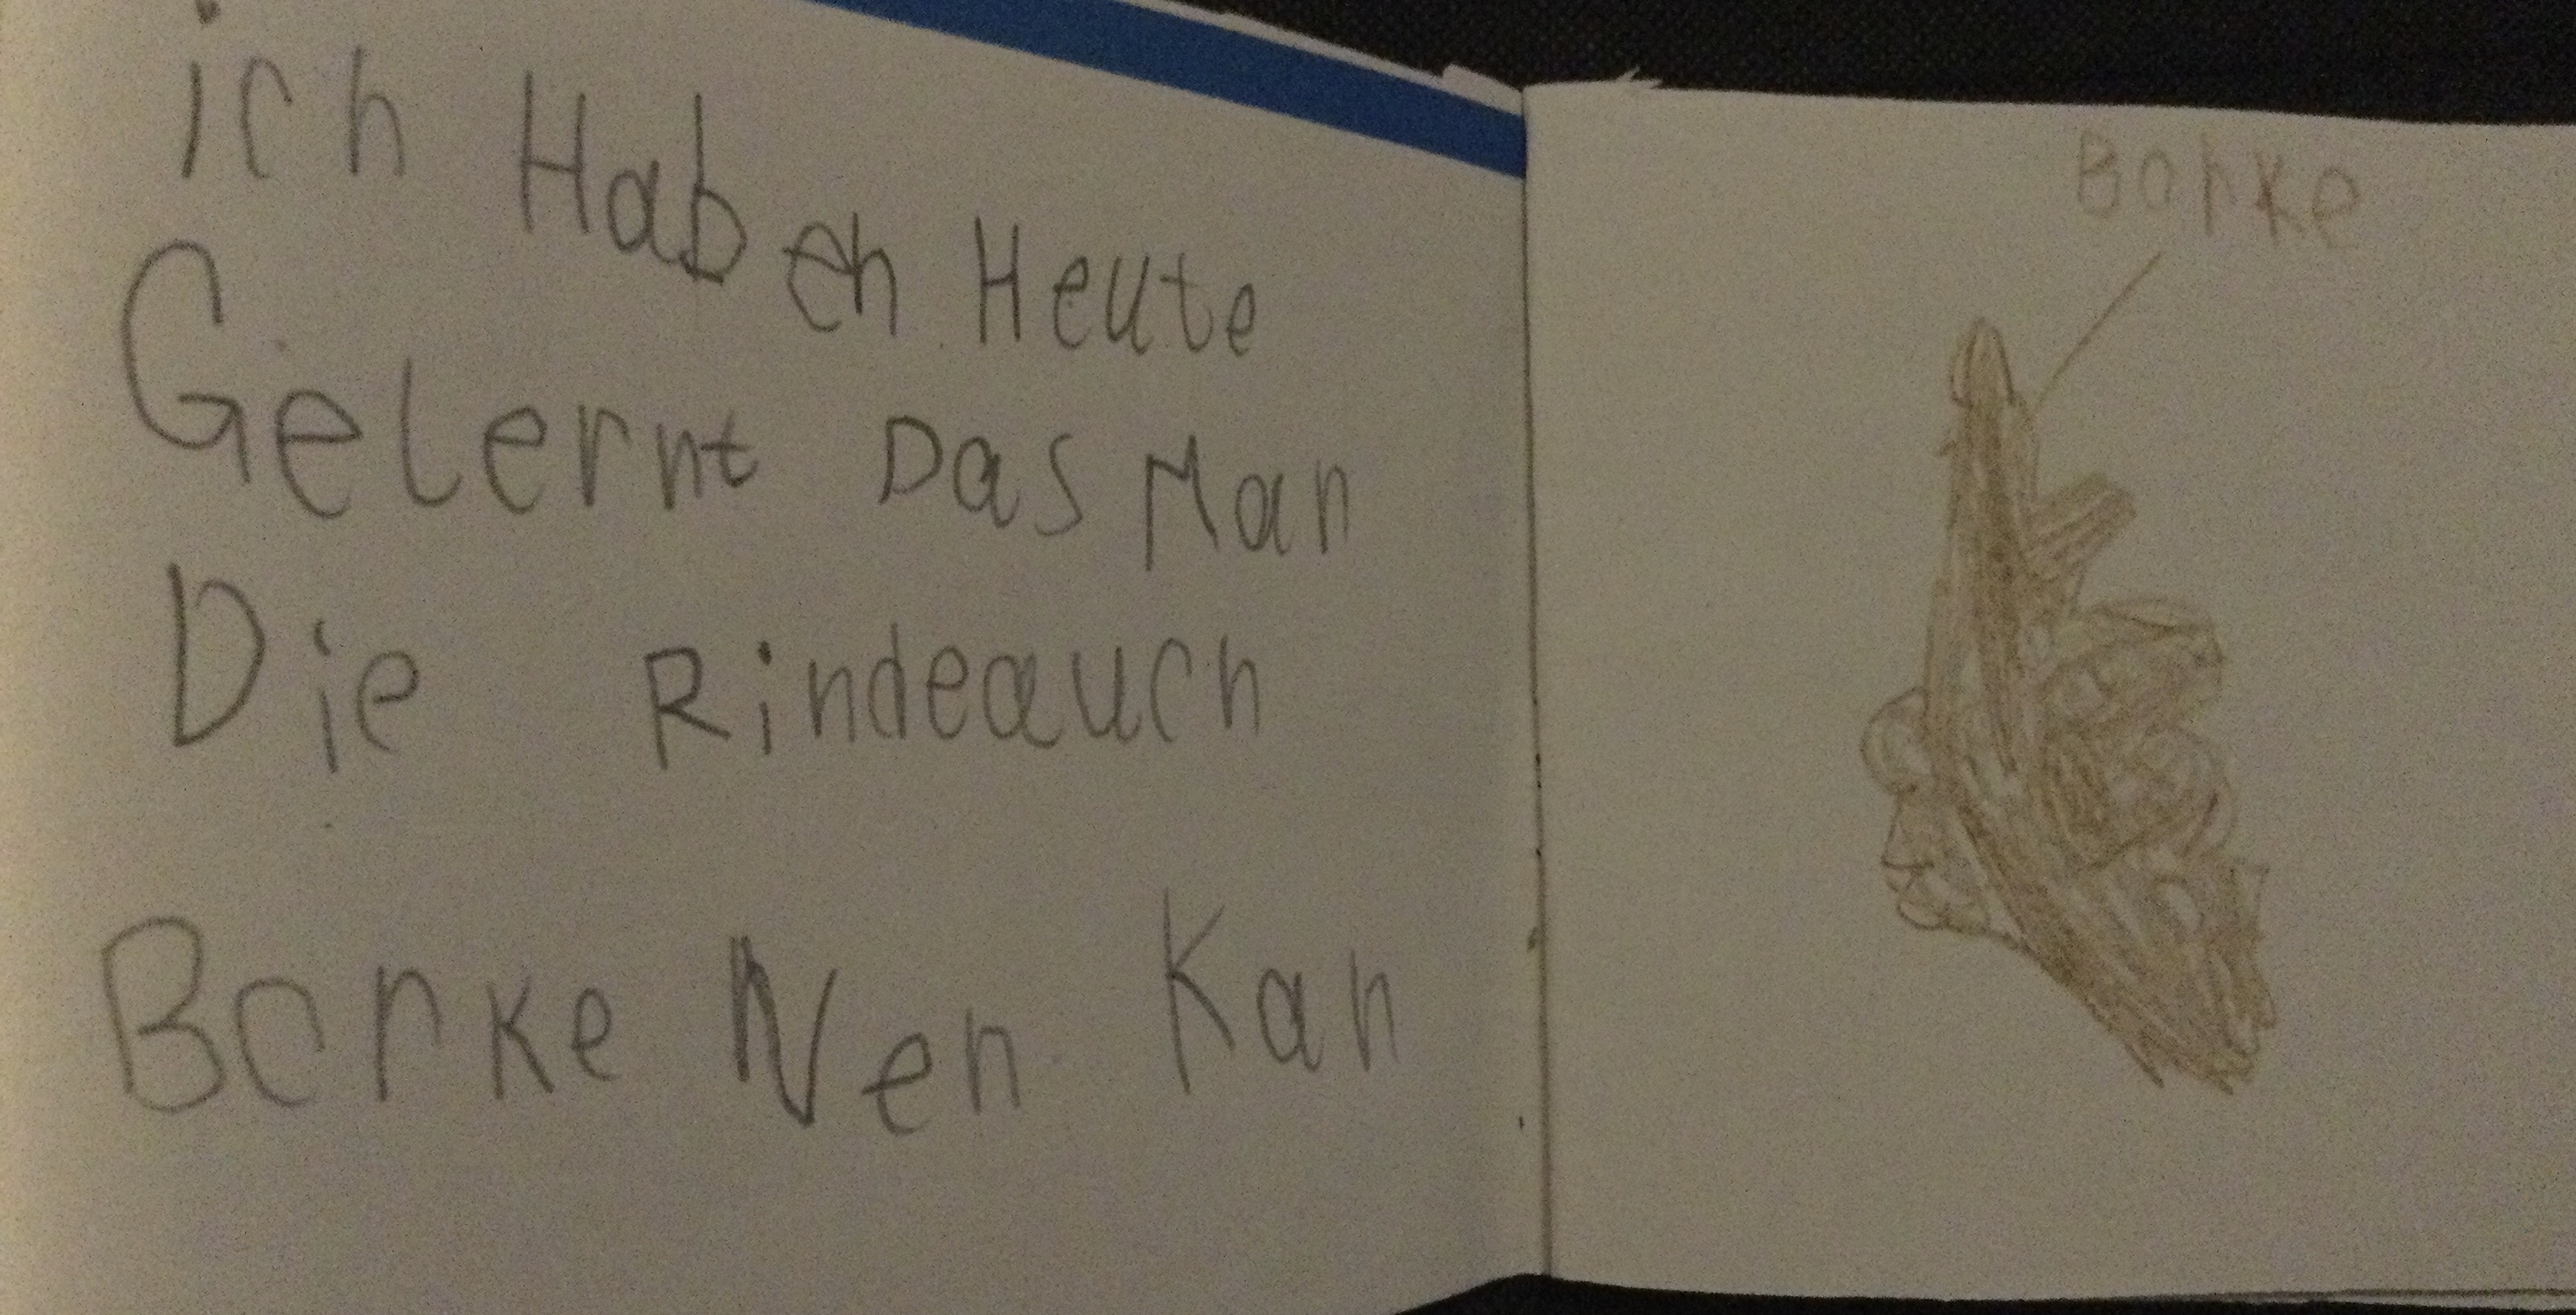 ich Haben Heute
Gelernt Das Man
Die Rindeauch
Borke Nen Kan
Borke